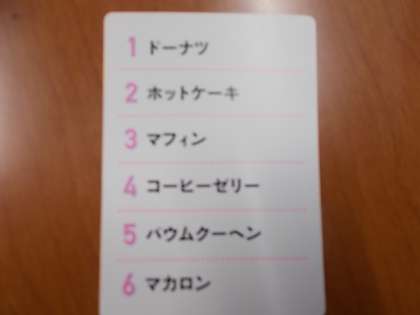 1 ドーナツ
2 ホットケーキ
3 マフィン
4 コーヒーゼリー
5 バウムクーヘン
6 マカロン